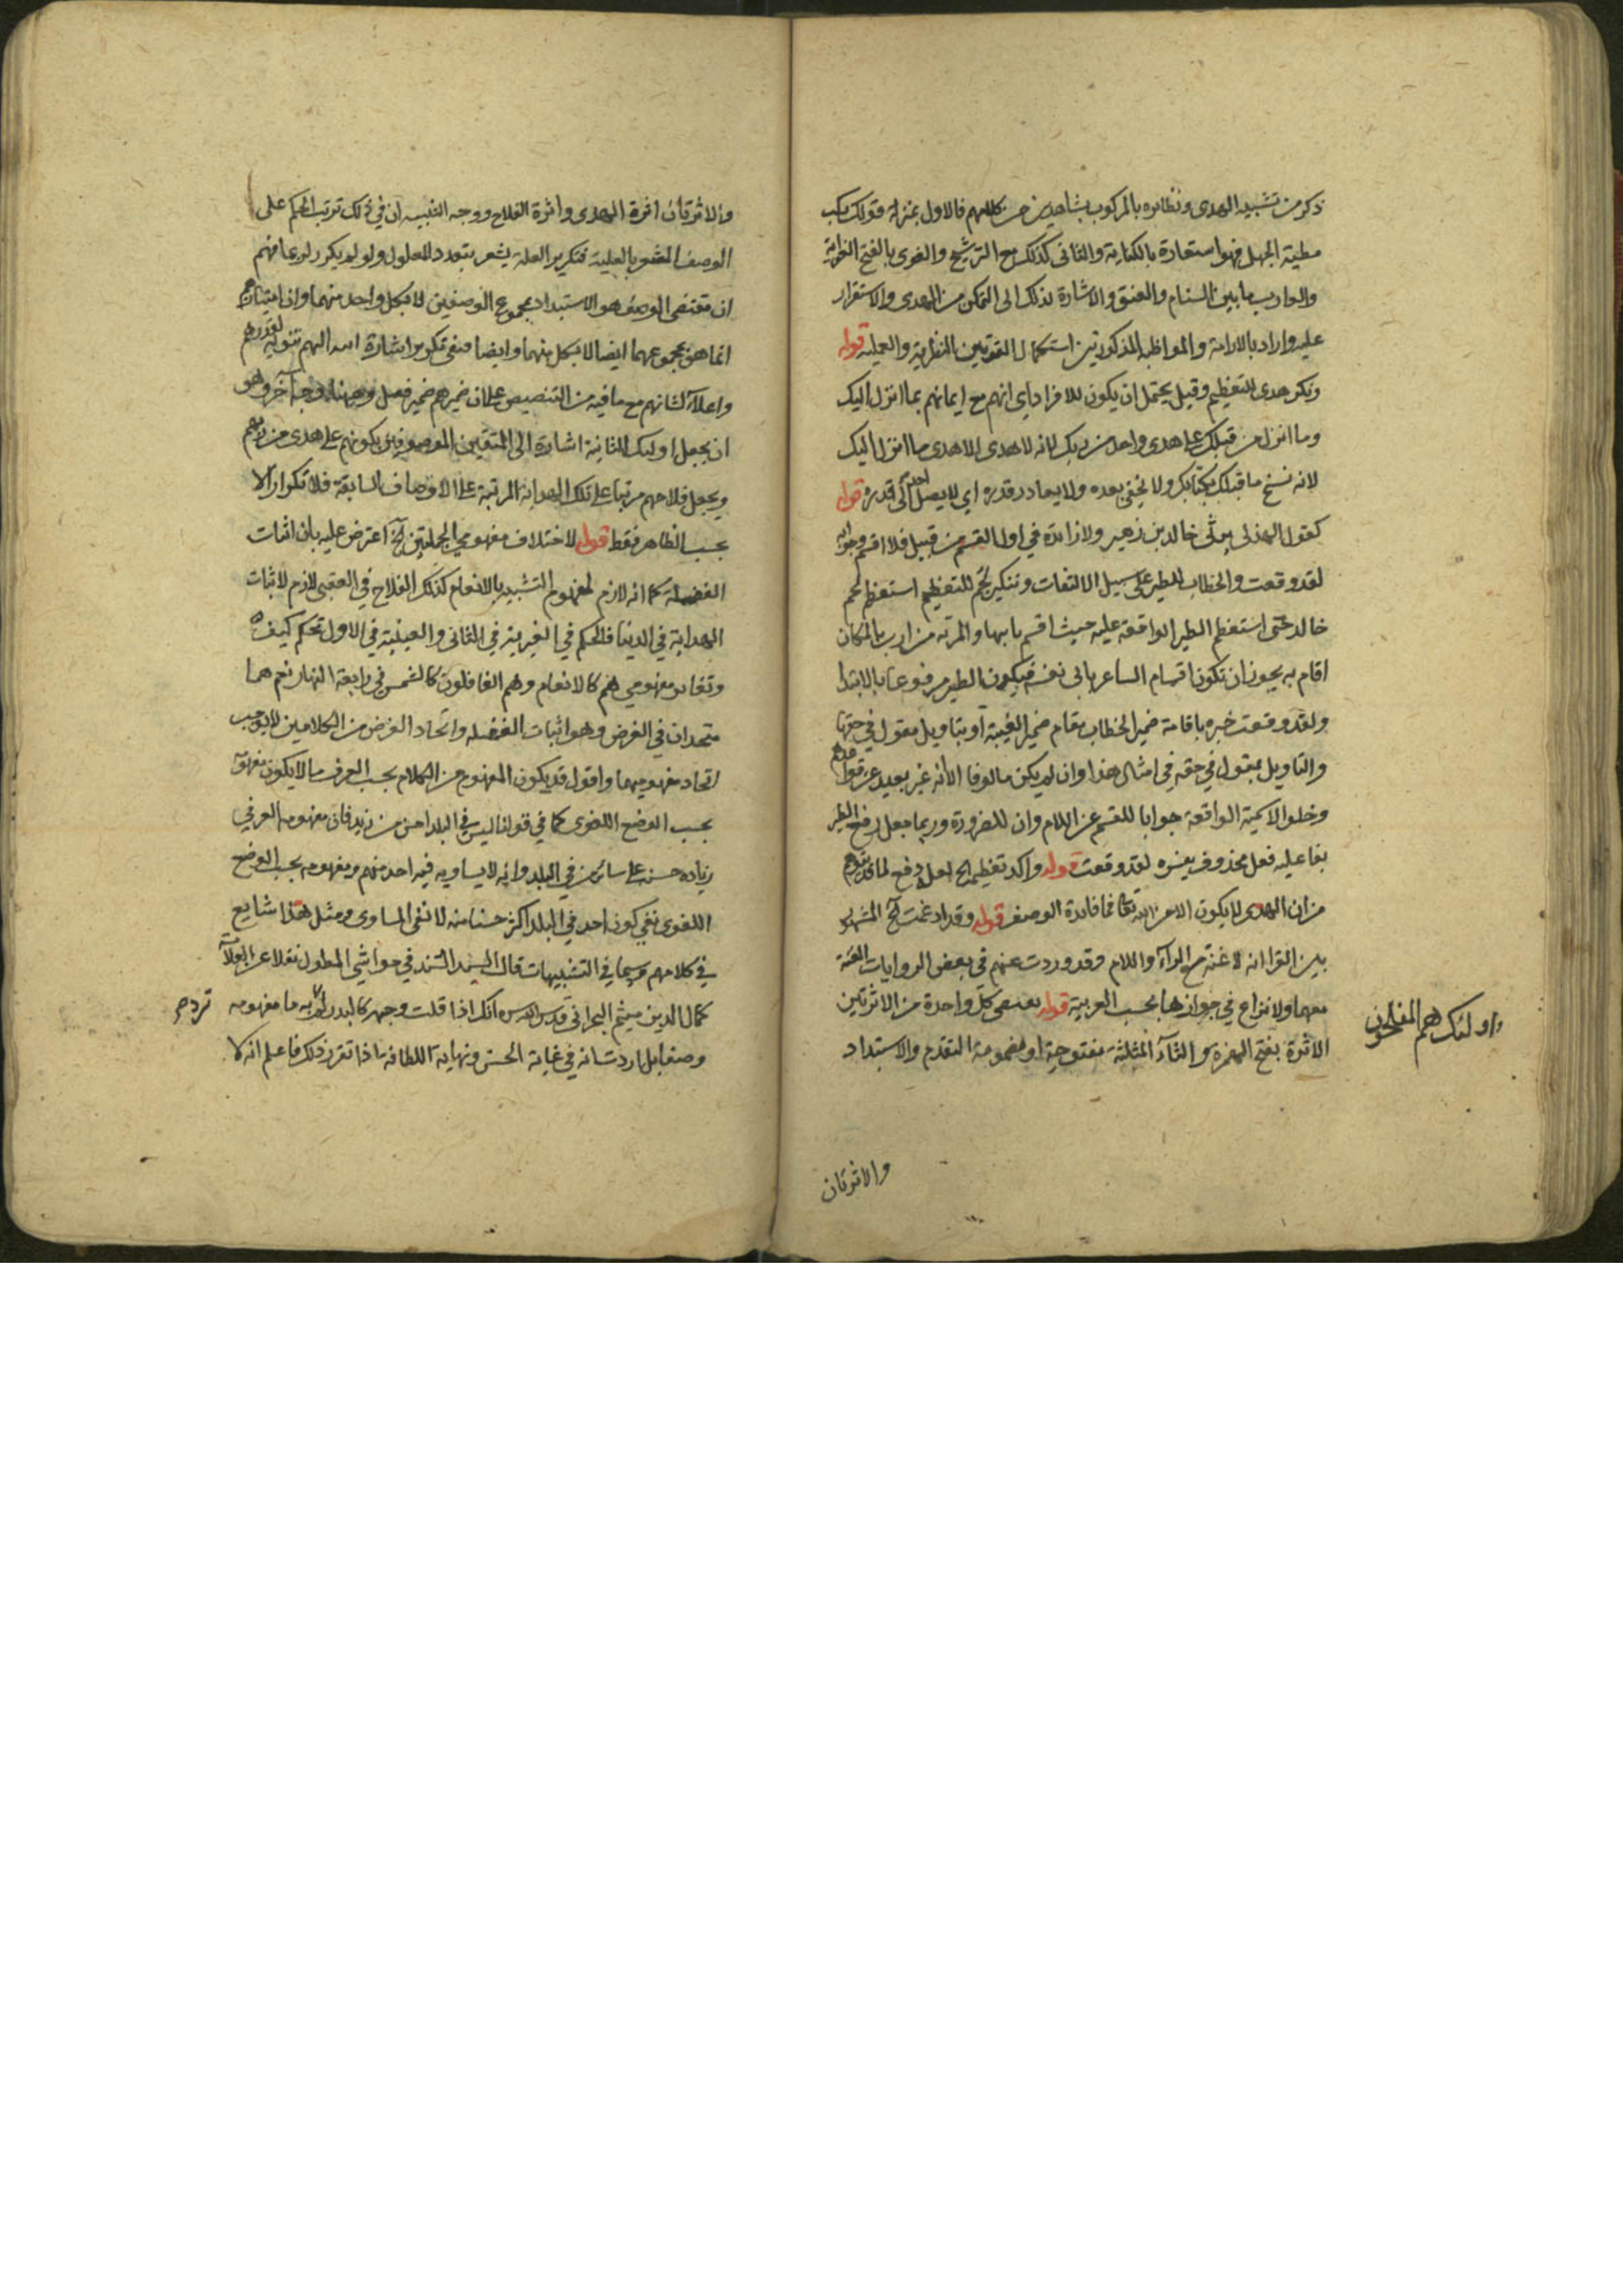 ذكر من تشبيه الهدى ونظائره بالمركوب بشاهدين من كلامهم فالاول بمنزلة قولك ركب
مطية الجهل فهو استعارة بالكناية والثانى كذلك مع الترشيح والغوى بالفتح الغواية
والغارب ما بين السنام والعنق والاشارة بذلك الى التمكن من الهدى والاستقرار
عليه واراد بالادامة والمواظبة المذكورتين استكمال القوتين النظرية والعملية قوله
ونكر هدى للتعظيم وقيل يحتمل ان يكون للافراد اى انهم مع ايمانهم بما انزل اليك
وما انزل من قبلك على هدى واحد من ربك لانه لا هدى الا هدى ما انزل اليك
لانه نسخ ما قبلك بكتابك ولا يخفى بعده ولا يقادر قدره اي لا يصل احد الى قدره قوله
كقول الهذلى يرثى خالد بن زهير ولا زائدة في اول القسم من قبيل فلا اقسم وجوابه
لقد وقعت والخطاب للطير على سبيل الالتفات وتنكير لحم للتعظيم استعظم لحم
خالد حتى استعظم الطير الواقعة عليه حيث اقسم بابيها والمربة من ارب بالمكان
اقام به يجوز ان تكون اقسام الشاعر بابى نفسه فيكون الطير مرفوعا بالابتدا
ولقد وقعت خبره باقامة ضمير الخطاب مقام ضمير الغيبة او بتاويل مقول في حقها
والتاويل بمقول في حقه في امثال هذا وان لم يكن مالوفا الا انه غير بعيد عن قواعدهم
وخلوا الاسمية الواقعة جوابا للقسم عن اللام وان للضرورة وربما جعل رفع الطير
بفاعليه فعل محذوف يفسره لقد وقعت قوله واكد تعظيمه الخ لعله دفع لما قد يتوهم
من ان الهدى لا يكون الا من الله تعالى فما فائدة الوصف قوله وقد ادغمت الخ المشهور
بين القرا انه لا غنة مع الرآء واللام وقد وردت عنهم في بعض الروايات الغنة
معهما ولا نزاع في جوازها بحسب العربية قوله بعنى كل واحدة من الاثرتين
الاثرة بفتح الهمزة والثآء المثلثة مفتوحة او مضمومة التقدم والاستبداد
واولئك هم المفلحون
والاثرتان
والاثرتان اثرة الهدى واثرة الفلاح ووجه التنبيه ان في ذلك ترتب الحكم على
الوصف المشعر بالعلية فتكرير العلة يشعر بتعدد المعلول ولو لم يكرر لربما فهم
ان مقتضى الوصف هو الاستبداد بمجموع الوصفين لا بكل واحد منهما وان امتيازهم
انما هو بمجموعهما ايضا لا بكل منهما وايضا ففى تكرير اشارة اليهم تنويه لقدرهم
واعلآء لشانهم مع ما فيه من التنصيص على ان ضميرهم ضمير فصل وههنا وجه آخر وهو
ان يجعل اولئك الثانية اشارة الى المتقين الموصوفين بكونهم على هدى من ربهم
ويجعل فلاحهم مرتبا على تلك الهداية المرتبة على الاوصاف السابقة فلا تكرار الا
بحسب الظاهر فقط قوله لاختلاف مفهومي الجملتين الخ اعترض عليه بان اثبات
الغفلة كما انه لازم لمفهوم التشبيه بالانعام كذلك الفلاح في العقبى لازم لاثبات
الهداية في الدنيا فالحكم في الغيرية في الثانى والعينية في الاول تحكم كيف
وتغاير مفهومي هم كالانعام وهم الغافلون كالشمس في رابعة النهار نعم هما
متحدان في الغرض وهو اثبات الغفلة واتحاد الغرض من الكلامين لا يوجب
اتحاد مفهوميهما واقول قد يكون المفهوم من الكلام بحسب العرف ما لا يكون مفهوما
بحسب الوضع اللغوى كما في قولنا ليس في البلد احسن من زيد فان مفهومه العرفي
زيادة حسنه على سائر من في البلد وانه لا يساويه فيه احد منهم ومفهومه بحسب الوضع
اللغوى نفى كون احد في البلد اكثر حسنا منه لا نفى المساوى ومثل هذا شايع
في كلامهم سيما في التشبيهات قال السيد السند في حواشي المطول نقلا عن العلآمة
كمال الدين ميثم البحرانى قدس سره انك اذا قلت وجهه كالبدر لم ترد به ما مفهومه
وصفا بل اردت انه في غاية الحسن ونهاية اللطافة اذا تقرر ذلك فاعلم انه كما